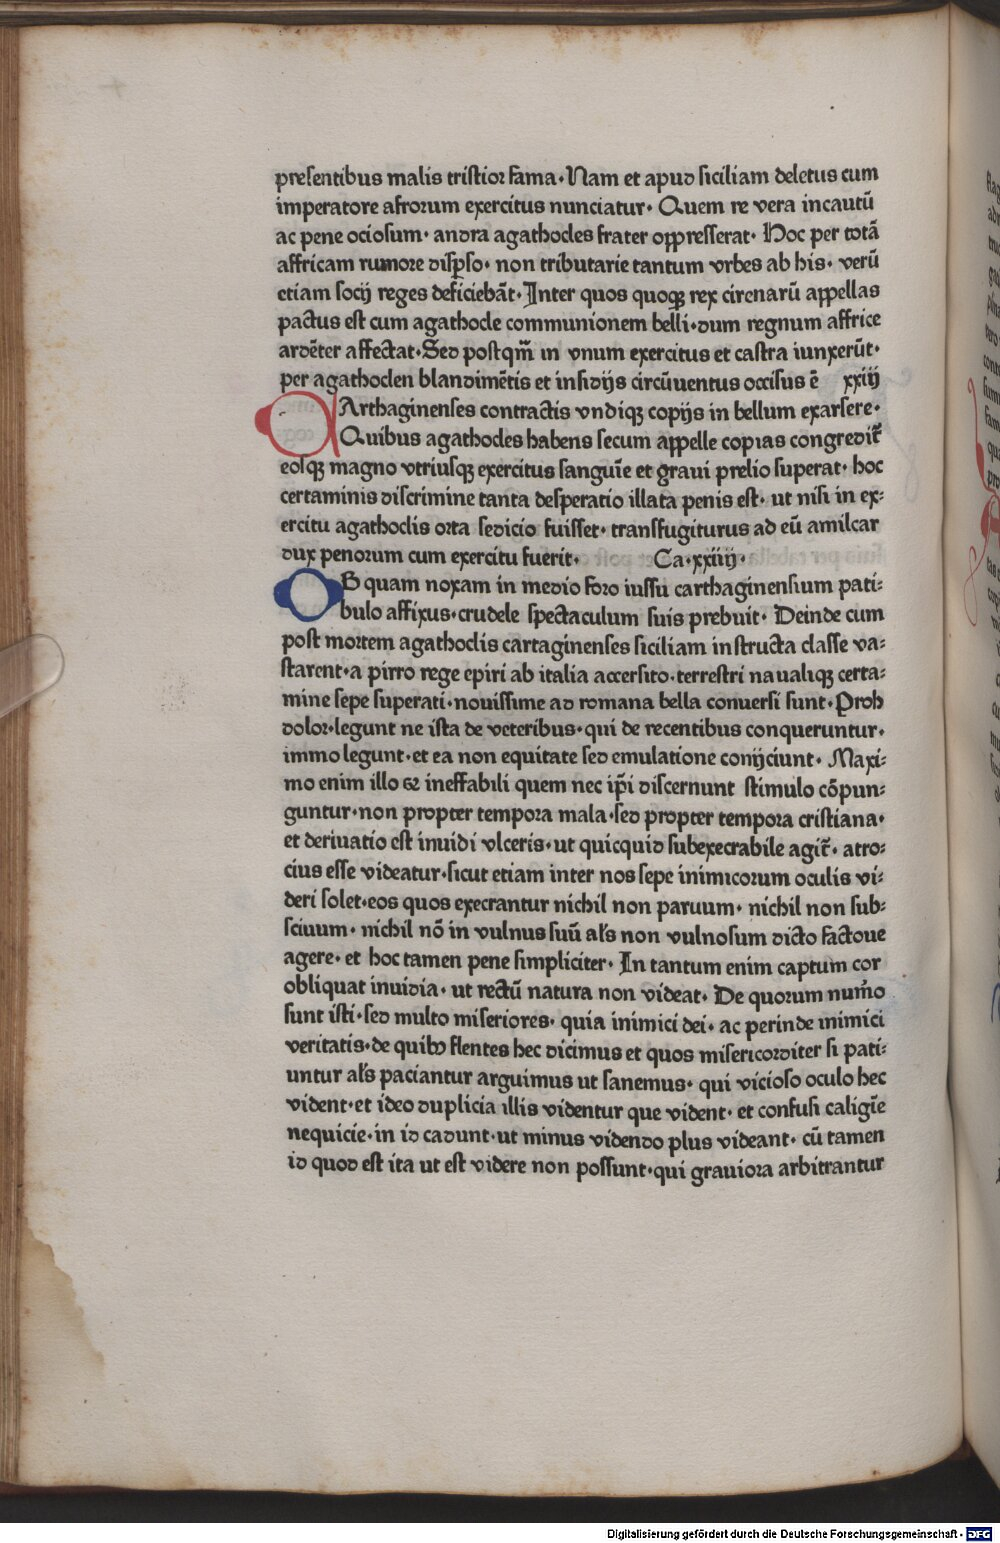 presentibus malis tristior fama· Nam et apud siciliam deletus cum
imperatore afrorum exercitus nunciatur· Quem re vera incautū
ac pene ociosum· andra agathocles frater oppresserat· Hoc per totā
affricam rumore disꝑso· non tributarie tantum vrbes ab his· verū
etiam socij reges deficiebāt· Inter quos quoqꝫ rex cirenarū appellas
pactus est cum agathocle communionem belli·dum regnum affrice
ardēter affectat·Sed postqm̄ in vnum exercitus et castra iunxerūt·
per agathoclen blandimētis et insidijs circūuentus occisus ē xxiij
CArthaginenses contractis vndiqꝫ copijs in bellum exarsere·
Quibus agathocles habens secum appelle copias congredit᷑
eosqꝫ magno vtriusqꝫ exercitus sanguīe et graui prelio superat· hoc
certaminis discrimine tanta desperatio illata penis est· ut nisi in ex⸗
ercitu agathoclis orta sedicio fuisset· transfugiturus ad eū amilcar
dux penorum cum exercitu fuerit· Ca·xxiiij·
OB quam noxam in medio foro iussu carthaginensium pati⸗
bulo affixus·crudele spectaculum suis prebuit· Deinde cum
post mortem agathoclis cartaginenses siciliam instructa classe va⸗
starent·a pirro rege epiri ab italia accersito·terrestri naualiqꝫ certa⸗
mine sepe superati·nouissime ad romana bella conuersi sunt·Proh
dolor·legunt ne ista de veteribus·qui de recentibus conqueruntur·
immo legunt·et ea non equitate sed emulatione conijciunt· Maxi⸗
mo enim illo et ineffabili quem nec ip̄i discernunt stimulo cōpun⸗
guntur·non propter tempora mala·sed propter tempora cristiana·
et deriuatio est inuidi vlceris·ut quicquid subexecrabile agit᷑· atro⸗
cius esse videatur·sicut etiam inter nos sepe inimicorum oculis vi⸗
deri solet·eos quos execrantur nichil non paruum· nichil non sub⸗
sciuum· nichil nō in vulnus suū al's non vulnosum dicto factoue
agere· et hoc tamen pene simpliciter· In tantum enim captum cor
obliquat inuidia· ut rectū natura non videat· De quorum num̄o
sunt isti·sed multo miseriores· quia inimici dei· ac perinde inimici
veritatis·de quibꝰ flentes hec dicimus et quos misericorditer si pati⸗
untur al's paciantur arguimus ut sanemus· qui vicioso oculo hec
vident·et ideo duplicia illis videntur que vident· et confusi caligīe
nequicie·in id cadunt·ut minus videndo plus videant· cū tamen
id quod est ita ut est videre non possunt·qui grauiora arbitrantur
Digitalisierung gefördert durch die Deutsche Forschungsgemeinschaft · DFG